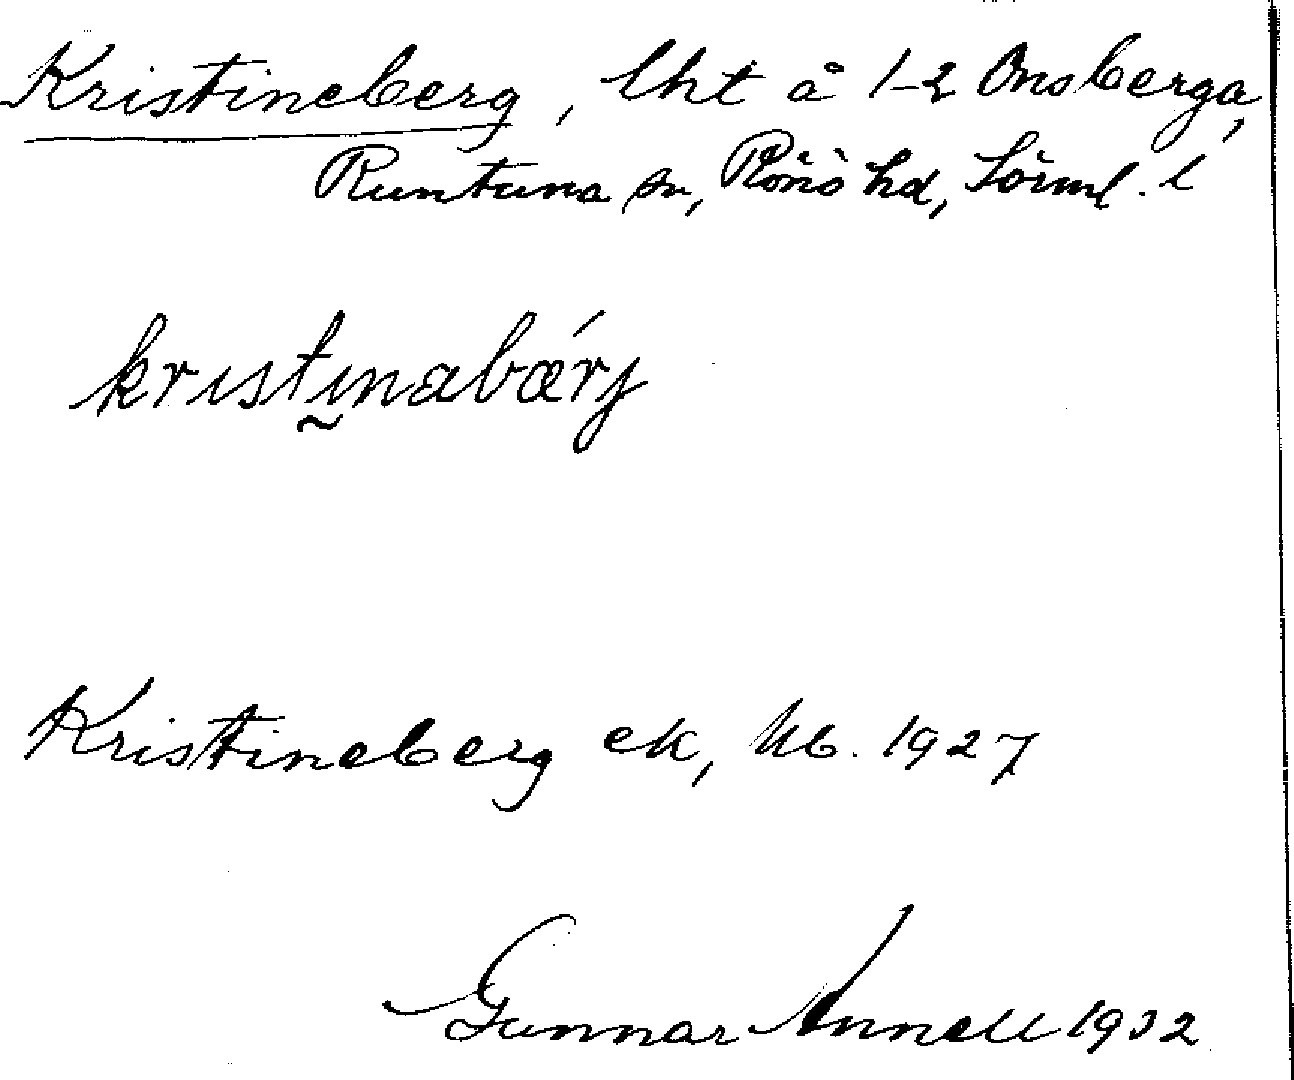 Kristineberg, lht å 1-2 Onsberga,
Runtuna sn, Rönö hd, Sörml. l
kristı̰nabǽrj
Kristineberg ek, Kb. 1927
Gunnar Annell 1932